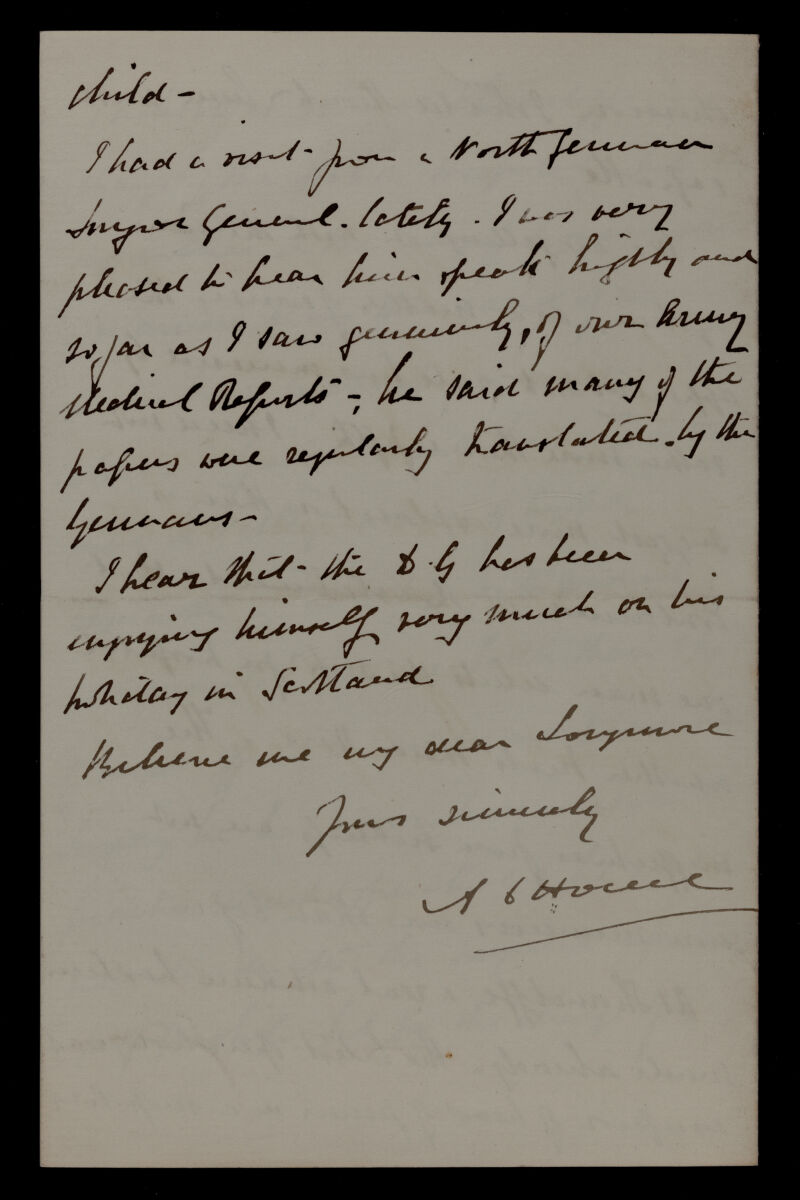 child -
I had a visit from a North German
Surgeon General. lately. I was very
pleased to hear him speak highly and
so far as I saw genuinely, of our Army
Medical Reports -, he said many of the
papers were regularly translated. by the
Germans -
I hear that the D.G has been
enjoying himself very much on his
holiday in Scotland
Believe me my dear Longmore
Yours sincerely
A